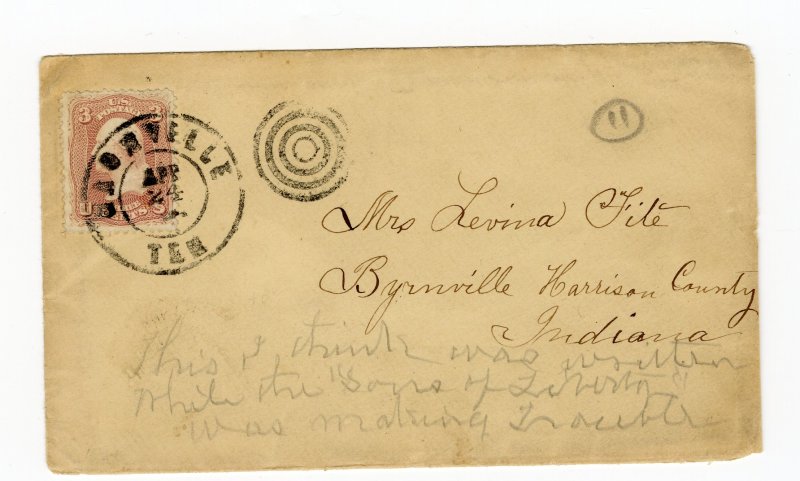 3 U.S. POSTAGE 3
KNOXVILLE
APR
24
TEN
11
Mrs Levina Fite
Byrnville Harrison County
Indiana
This I think was written
While the "Sons of Liberty"
was making Trouble